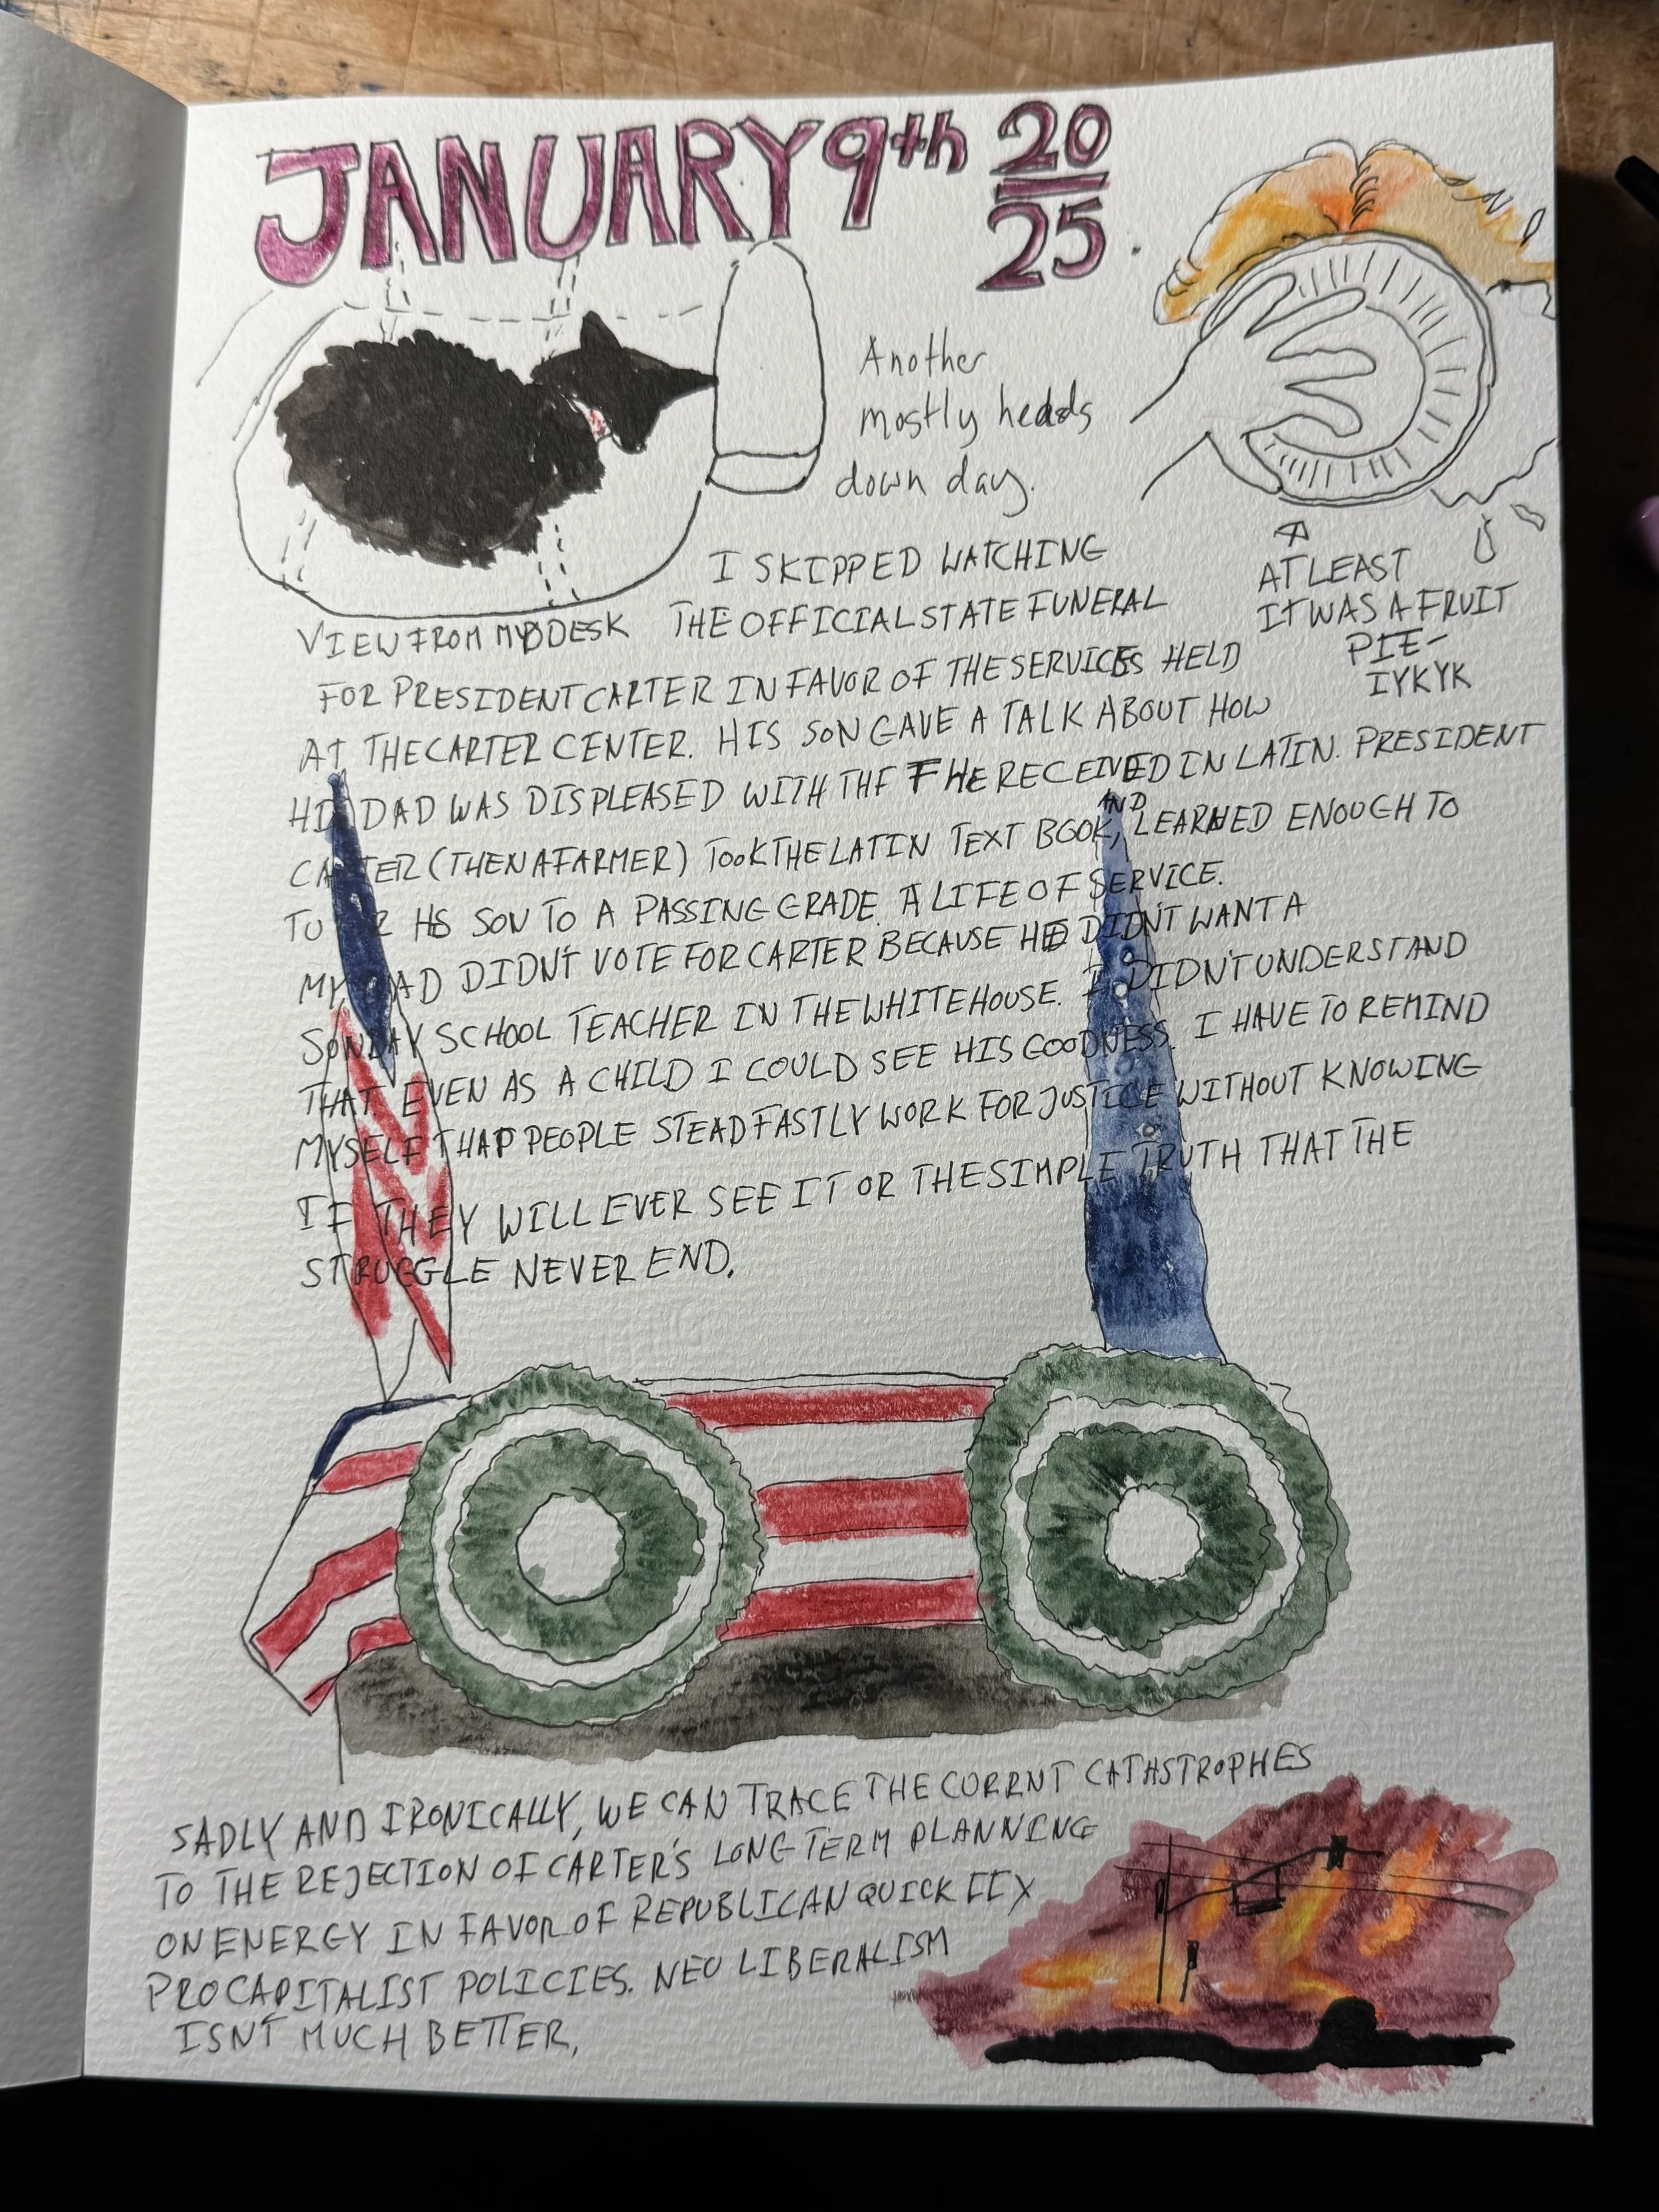 JANUARY 9th 20
25.
Another
mostly heads
down day.
AT LEAST
IT WAS A FRUIT
PIE-
IYKYK
VIEW FROM MY DESK
I SKIPPED WATCHING
THE OFFICIAL STATE FUNERAL
FOR PRESIDENT CARTER IN FAVOR OF THE SERVICES HELD
AT THE CARTER CENTER. HIS SON GAVE A TALK ABOUT HOW
HIS DAD WAS DISPLEASED WITH THE F HE RECEIVED IN LATIN. PRESIDENT
CARTER (THEN A FARMER) TOOK THE LATIN TEXT BOOK, AND LEARNED ENOUGH TO
TUTOR HIS SON TO A PASSING GRADE. A LIFE OF SERVICE.
MY DAD DIDN'T VOTE FOR CARTER BECAUSE HE DIDN'T WANT A
SUNDAY SCHOOL TEACHER IN THE WHITE HOUSE. I DIDN'T UNDERSTAND
THAT. EVEN AS A CHILD I COULD SEE HIS GOODNESS. I HAVE TO REMIND
MYSELF THAT PEOPLE STEADFASTLY WORK FOR JUSTICE WITHOUT KNOWING
IF THEY WILL EVER SEE IT OR THE SIMPLE TRUTH THAT THE
STRUGGLE NEVER END.
SADLY AND IRONICALLY, WE CAN TRACE THE CURRNT CATHSTROPHES
TO THE REJECTION OF CARTER'S LONG TERM PLANNING
ON ENERGY IN FAVOR OF REPUBLICAN QUICK FIX
PRO CAPITALIST POLICIES. NEO LIBERALISM
ISN'T MUCH BETTER.